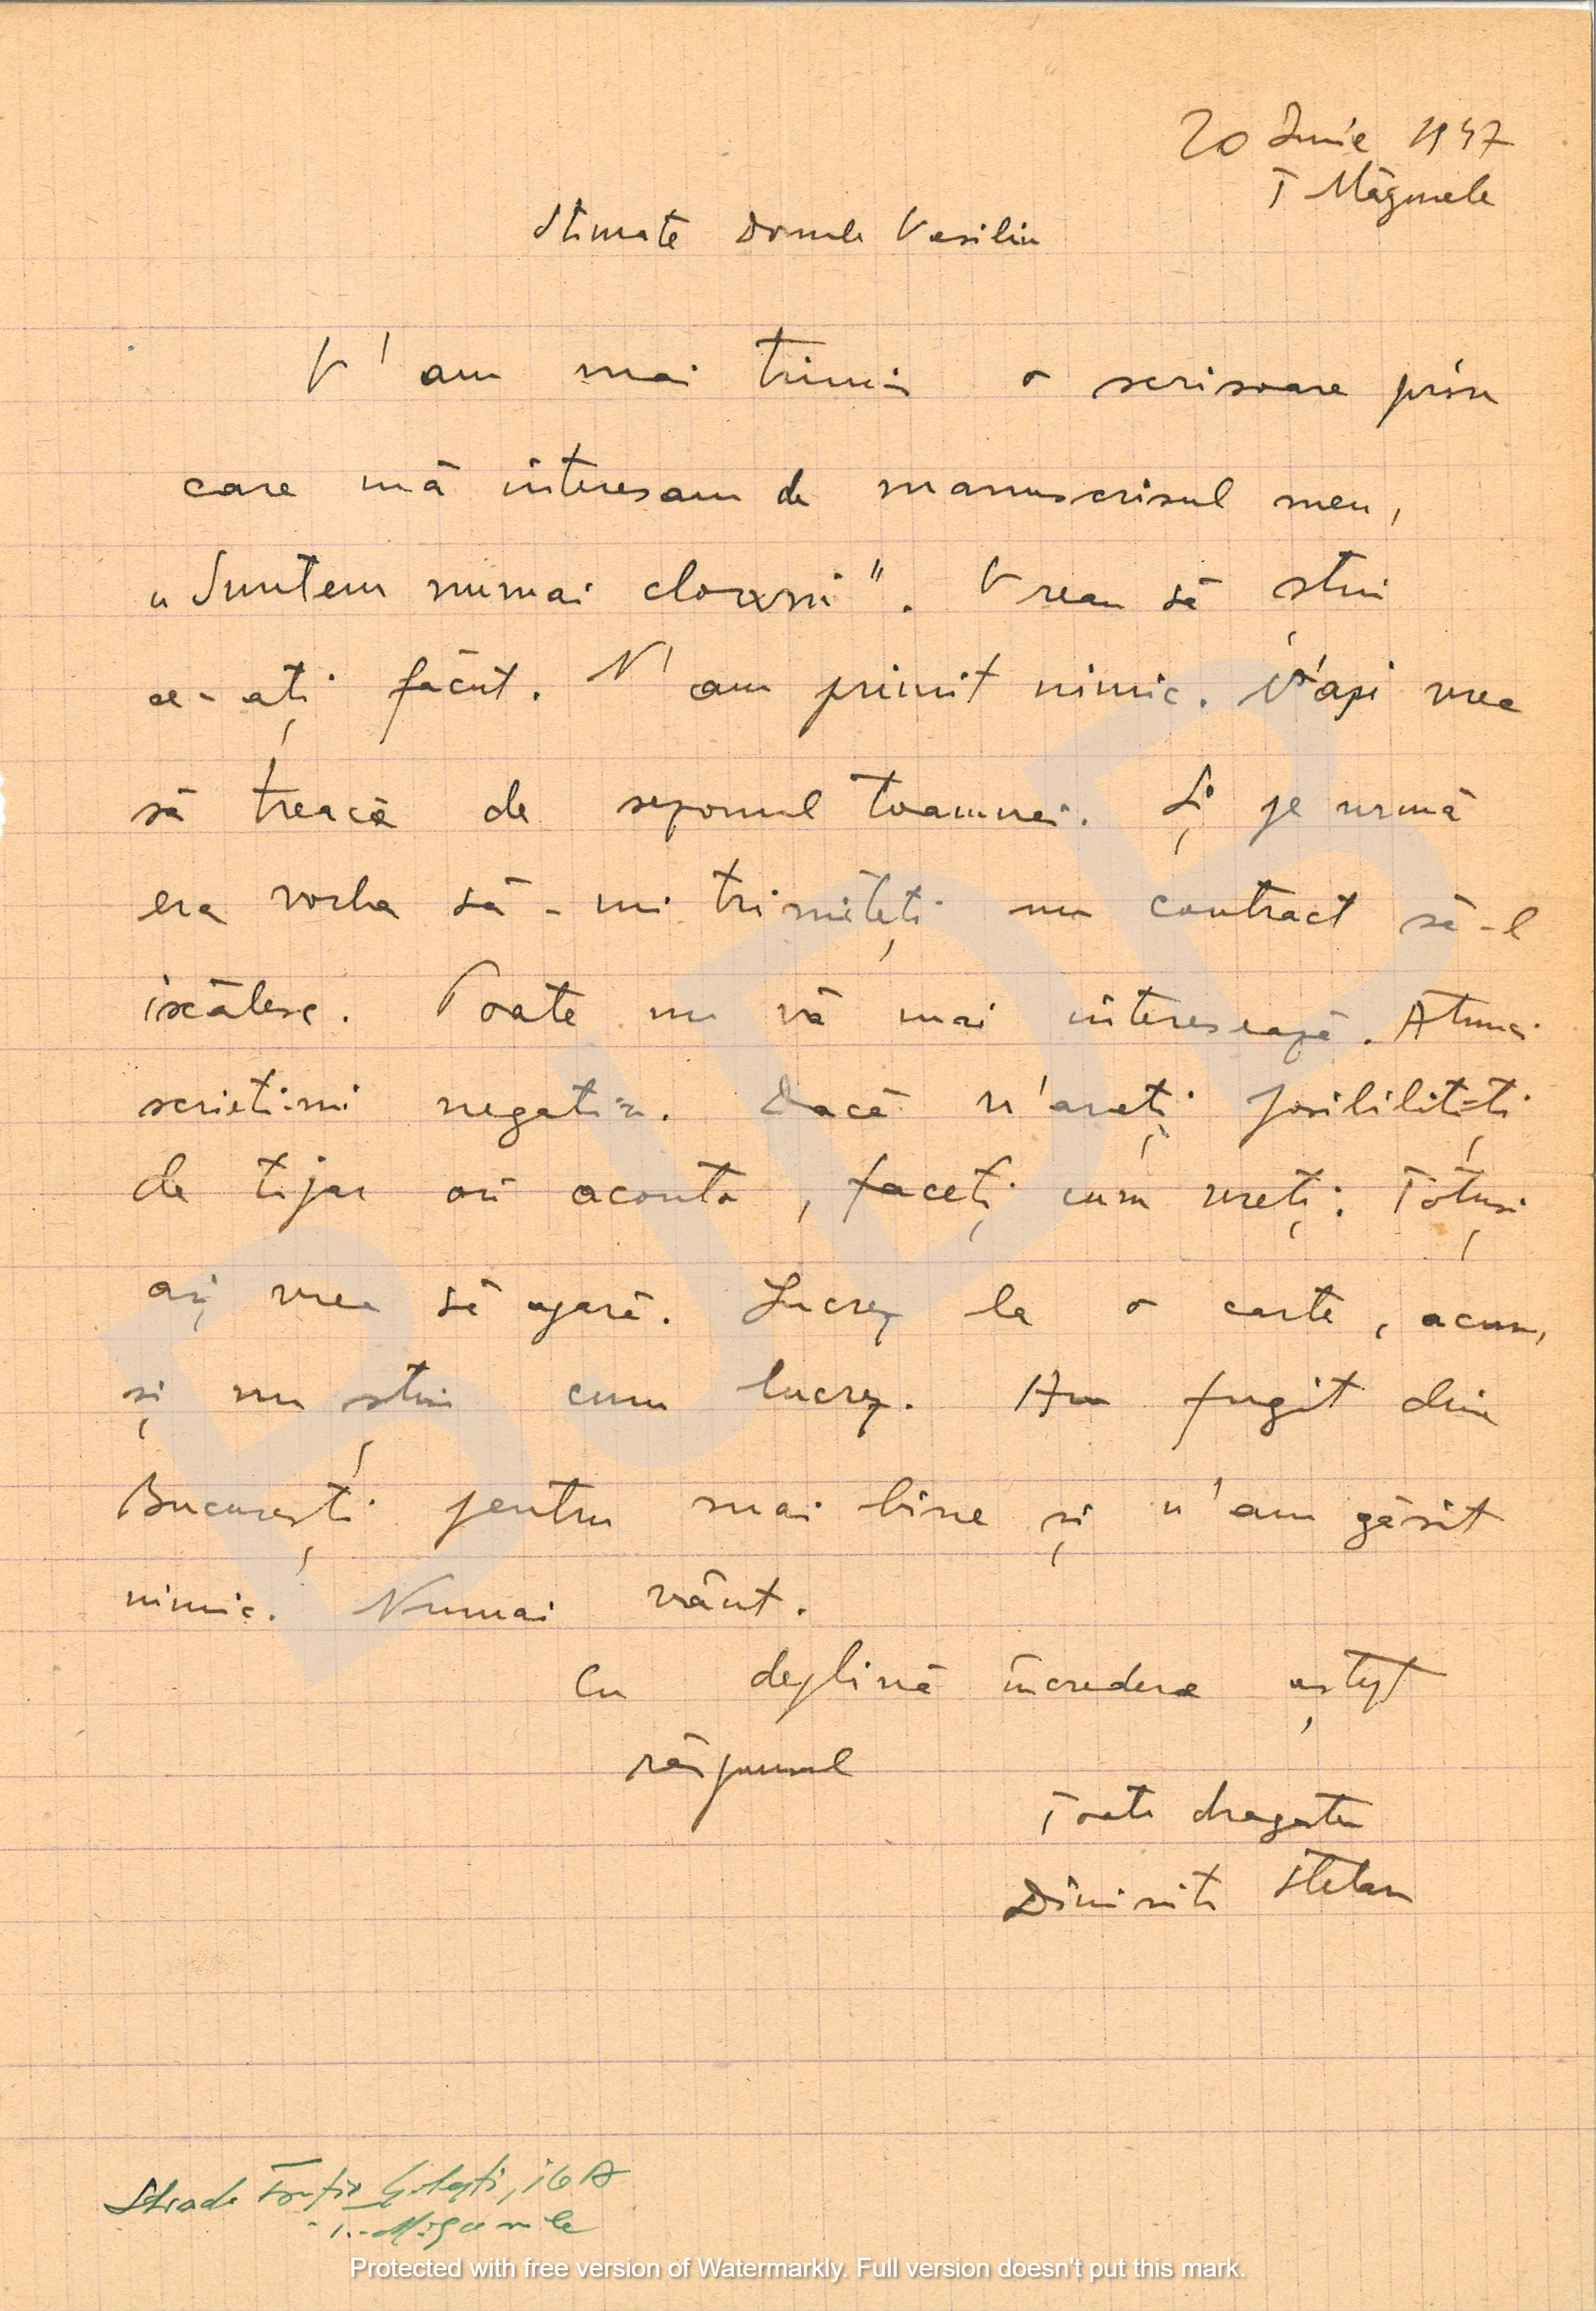 20 Iunie 1947
T Măgurele
Stimate Domnule Vasiliu
V'am mai trimis o scrisoare prin
care mă interesam de manuscrisul meu,
„Suntem numai clovni". Vreau să știu
ce-ați făcut. N'am primit nimic. N'ași vrea
să treacă de sezonul toamnei. Și pe urmă
era vorba să-mi trimiteți un contract să-l
iscălesc. Poate nu vă mai interesează. Atunci
scrieti-mi negativ. Dacă n'aveți posibilități
de tipar ori aconto, faceți cum vreți. Totuși
aș vrea să apară. Lucrez la o carte, acum,
și nu știu cum lucrez. Am fugit din
București pentru mai bine și n'am găsit
nimic. Numai vânt.
Cu deplină încredere aștept
răspunsul
Toată dragostea
Dimisiti Stelan
Strada Golești, 16 A
T.-Măgurele
BJDB
Protected with free version of Watermarkly. Full version doesn't put this mark.